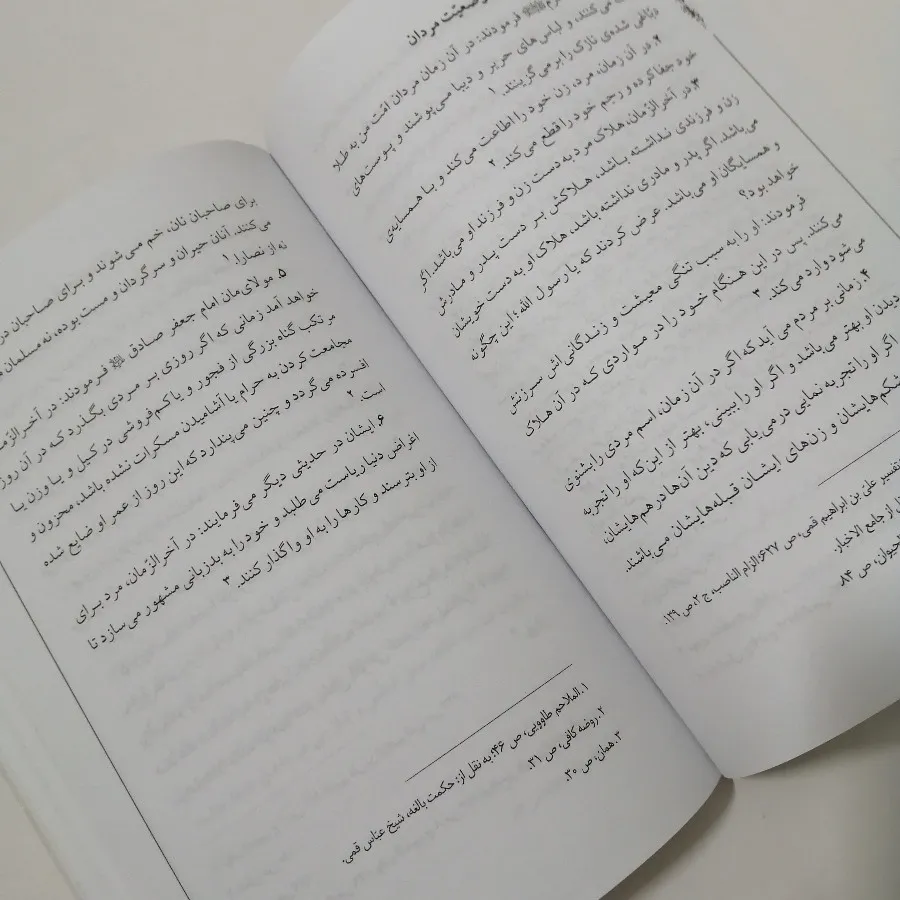 وضعیّت مردان
فرمودند: در آن زمان مردان امّت من به طلا
می کنند، و لباس‌های حریر و دیبا می‌پوشند و پوست‌های
دبّاغی شده‌ی نازک را بر می‌گزینند. ۱
۲. در آن زمان، مرد، زن خود را اطاعت می‌کند و با همسایه‌ی
خود جفا کرده و رحِم خود را قطع می‌کند. ۲
۳. در آخرالزّمان، هلاک مرد به دست زن و فرزند او می‌باشد. اگر
زن و فرزندی نداشته باشد، هلاکش بر دست پدر و مادرش
می‌باشد. اگر پدر و مادری نداشته باشد، هلاک او به دست خویشان
و همسایگان او می‌باشد. عرض کردند که یا رسول الله؛ این چگونه
خواهد بود؟
فرمودند: او را به سبب تنگی معیشت و زندگانی‌اش سرزنش
می کنند. پس در این هنگام خود را در مواردی که در آن هلاک
می شود وارد می‌کند. ۳
۴. زمانی بر مردم می آید که اگر در آن زمان، اسم مردی را بشنوی
دیدن او بهتر می‌باشد و اگر او را ببینی، بهتر از این که او را تجربه
اگر او را تجربه نمایی در می‌یابی که دین آن‌ها درهم‌هایشان،
شکم‌هایشان و زن‌های ایشان قبله‌هایشان می‌باشند
تفسیر علی بن ابراهیم قمی، ص ۶۲۷؛ الزام الناصب، ج ۲، ص ۱۲۹.
از جامع الاخبار.
ص ۸۴.
برای صاحبان نان، خم می‌شوند و برای صاحبان
می‌کنند. آنان حیران و سرگردان و مست بوده، نه مسلمان
نه از نصارا. ۱
۵. مولای‌مان امام جعفر صادق فرمودند: در آخر
خواهد آمد زمانی که اگر روزی بر مردی بگذرد که در آن روز
مرتکب گناه بزرگی از فجور و یا کم‌فروشی در کیل و یا وزن یا
مجامعت کردن به حرام یا آشامیدن مسکرات نشده باشد، محزون و
افسرده می گردد و چنین می‌پندارد که این روز از عمر او ضایع شده
است. ۲
۶. ایشان در حدیثی دیگر می‌فرمایند: در آخرالزّمان، مرد برای
اغراض دنیا ریاست می طلبد و خود را به بدزبانی مشهور می‌سازد تا
از او بترسند و کارها را به او واگذار کنند. ۳
۱. الملاحم طاووبی، ص ۴۶؛ به نقل از: حکمت بالغه، شیخ عبّاس قمی.
۲. روضه کافی، ص ۳۱.
۳. همان، ص ۳۰.